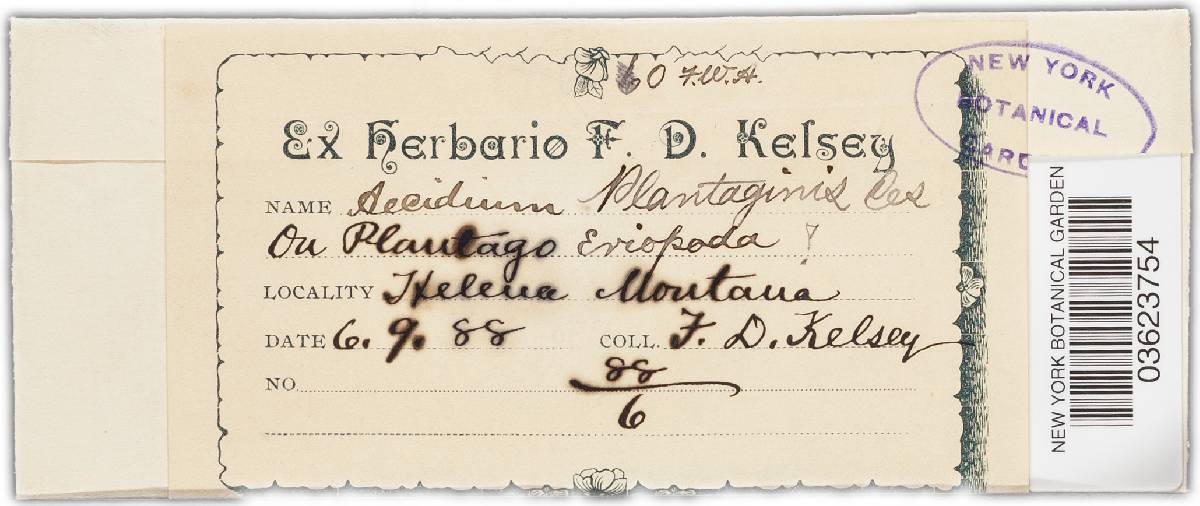 60 F.W.A.
NEW YORK
BOTANICAL
GARD
Ex Herbario F. D. Kelsey
NAME Aecidium Plantaginis Ces
On Plantago Eriopoda !
LOCALITY Helena Montana
DATE 6. 9. 88 COLL. F. D. Kelsey
NO. 88
6
NEW YORK BOTANICAL GARDEN
03623754